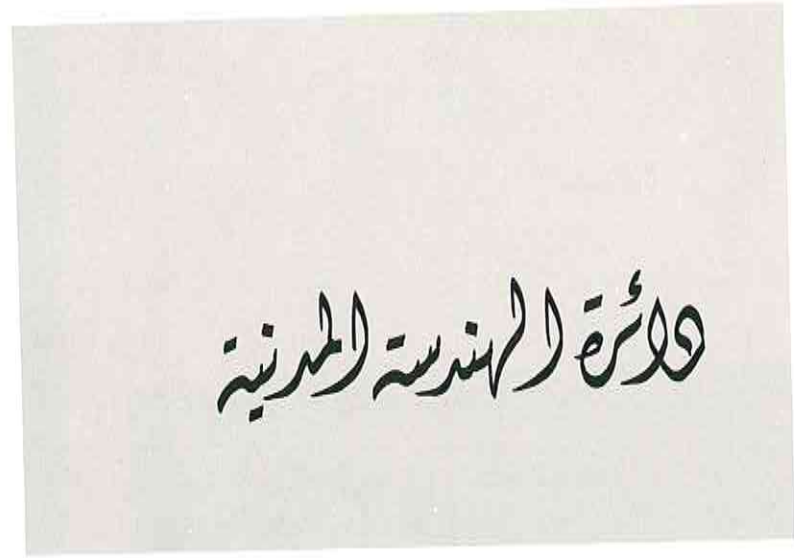 دائرة الهندسة المدنية